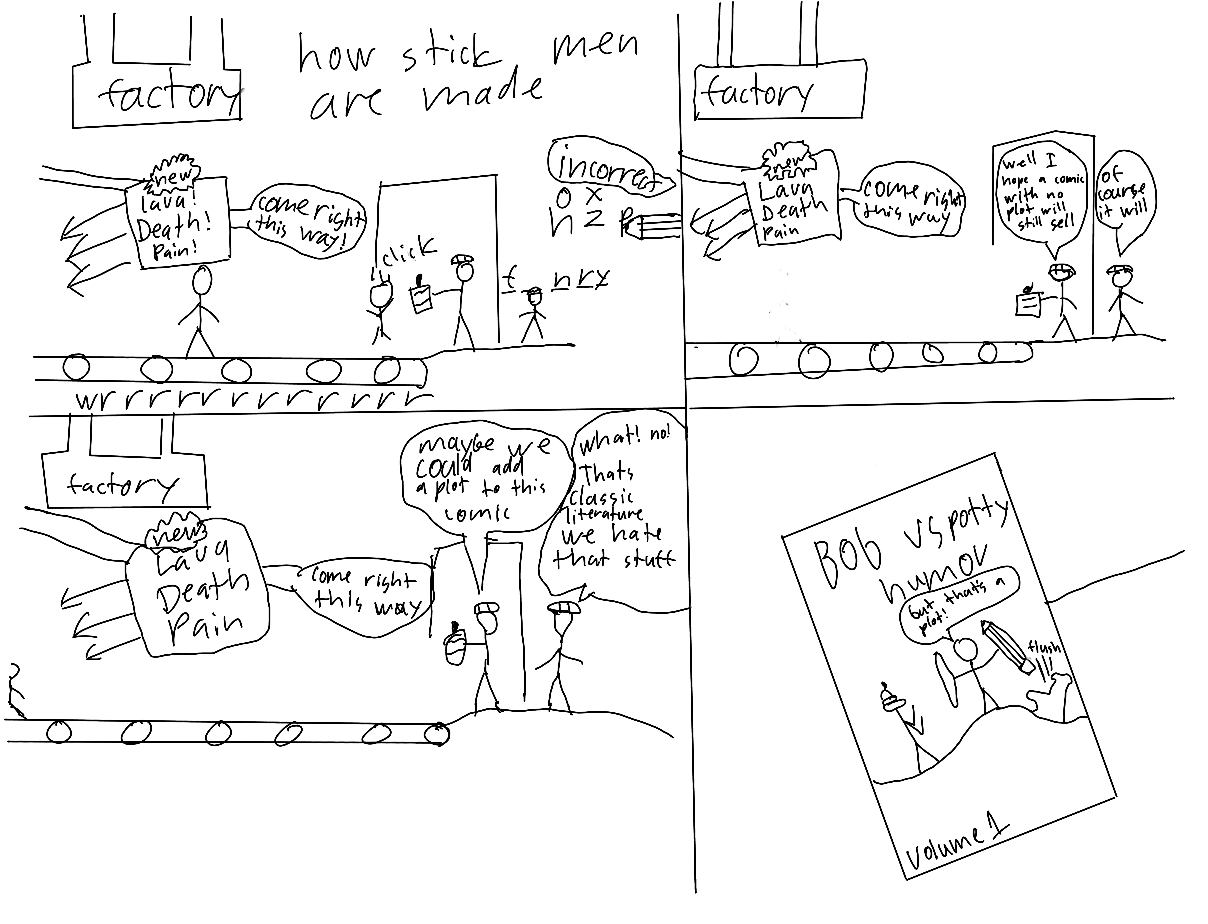 how stick men
are made
factory
new
Lava!
Death!
Pain!
come right
this way!
click
incorrect
o x
h z
t _ n r x
wrrrrrrrrrrrrr
factory
new
Lava
Death
Pain
come right
this way
well I
hope a comic
with no
plot will
still sell
of
course
it will
factory
new
Lava
Death
Pain
come right
this way
maybe we
could add
a plot to this
comic
what! no!
Thats
classic
literature
we hate
that stuff
Bob vs potty
humor
but that's a
plot!
flush
volume 1